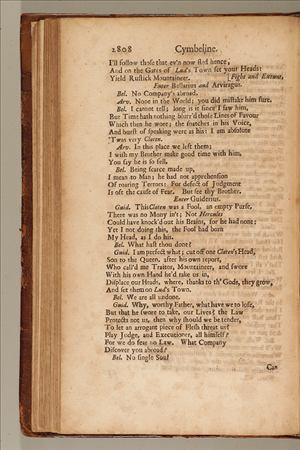 2808 Cymbeline.
I'll follow those that ev'n now fled hence,
And on the Gates of Lud's Town set your Heads:
Yield Rustick Mountaineer. [Fight and Exeunt,
Enter Bellarius and Arviragus.
Bel. No Company's abroad.
Arv. None in the World; you did mistake him sure.
Bel. I cannot tell; long is it since I saw him,
But Time hath nothing blurr'd those Lines of Favour
Which then he wore; the snatches in his Voice,
And burst of speaking were as his: I am absolute
'Twas very Cloten.
Arv. In this place we left them;
I wish my Brother make good time with him,
You say he is so fell.
Bel. Being scarce made up,
I mean to Man; he had not apprehension
Of roaring Terrors: For defect of Judgment
Is oft the cause of Fear. But see thy Brother.
Enter Guiderius.
Guid. This Cloten was a Fool, an empty Purse,
There was no Mony in't; Not Hercules
Could have knock'd out his Brains, for he had none:
Yet I not doing this, the Fool had born
My Head, as I do his.
Bel. What hast thou done?
Guid. I am perfect what; cut off one Cloten's Head,
Son to the Queen, after his own report,
Who call'd me Traitor, Mountaineer, and swore
With his own Hand he'd take us in,
Displace our Heads, where, thanks to th' Gods, they grow,
And set them on Lud's Town.
Bel. We are all undone.
Guid. Why, worthy Father, what have we to lose,
But that he swore to take, our Lives? the Law
Protects not us, then why should we be tender,
To let an arrogant piece of Flesh threat us?
Play Judge, and Executioner, all himself?
For we do fear no Law. What Company
Discover you abroad?
Bel. No single Soul
Can